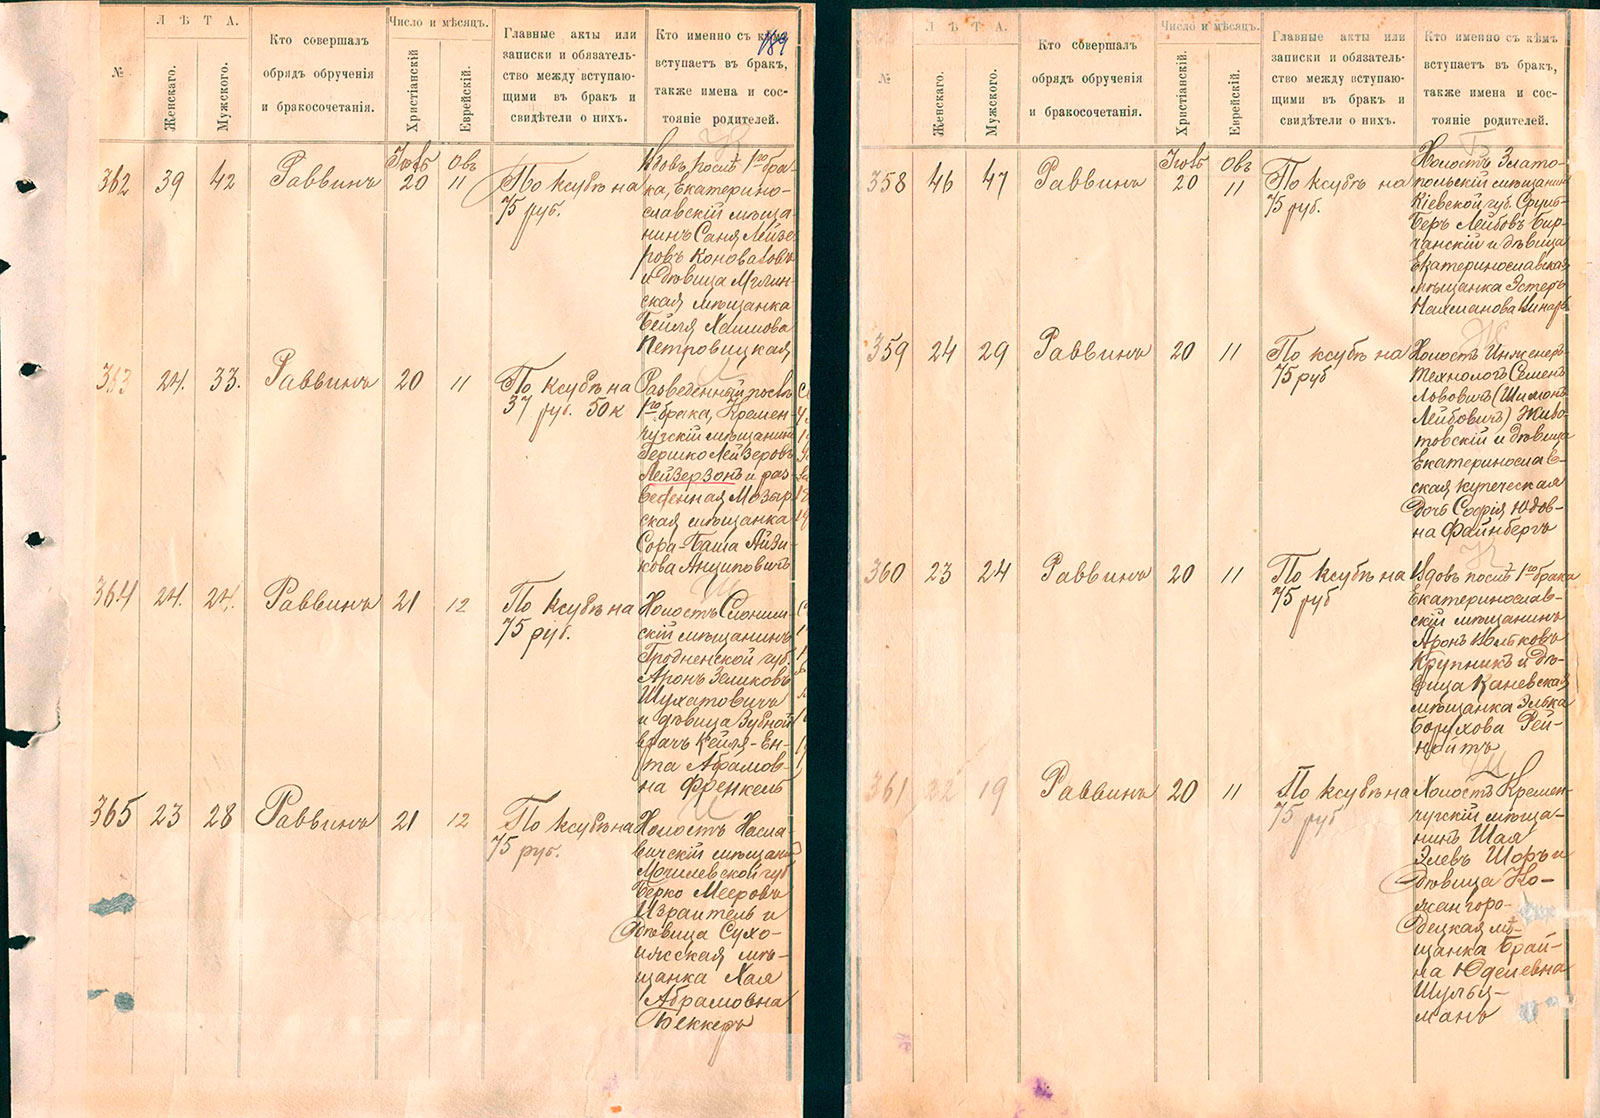 189
Л Ѣ Т А.
Число и мѣсяцъ.
№
Женскаго.
Мужского.
Кто совершалъ
обрядъ обрученія
и бракосочетанія.
Христіанскій
Еврейскій.
Главные акты или
записки и обязатель-
ство между вступаю-
щими въ бракъ и
свидѣтели о нихъ.
Кто именно съ кѣмъ
вступаетъ въ бракъ,
также имена и сос-
тояніе родителей.
362 39 42 Раввинъ 20 11
По ксубѣ на
75 руб.
Вдовъ послѣ 1го бра-
ка, Екатерино-
славскій мѣща-
нинъ Саня Лейзе-
ровъ Коноваловъ
и дѣвица Мглин-
ская мѣщанка
Бейля Хаимова
Петровицкая
363 24. 33. Раввинъ 20 11
По ксубѣ на
37 руб. 50 к
Разведенный послѣ
1го брака, Кремен-
чугскій мѣщанинъ
Гершко Лейзеровъ
Лейзерзонъ и раз-
веденная Мозыр-
ская мѣщанка
Сора-Баша Айзи-
кова Анциповичъ
364 24. 24. Раввинъ 21 12
По ксубѣ на
75 руб.
Холостъ Слоним-
скій мѣщанинъ
Гродненской губ.
Аронъ Зеликовъ
Шухатовичъ
и дѣвица Зубной
врачъ Кейля-Ен-
та Абрамов-
на Френкель
365 23 28 Раввинъ 21 12
По ксубѣ на
75 руб.
Холостъ Насла-
вичскій мѣщан.
Могилевской губ
Берко Мееровъ
Израитель и
дѣвица Сухо-
ляская мѣ-
щанка Хая
Абрамовна
Беккеръ
Л Ѣ Т А.
Число и мѣсяцъ.
№
Женскаго.
Мужского.
Кто совершалъ
обрядъ обрученія
и бракосочетанія.
Христіанскій.
Еврейскій.
Главные акты или
записки и обязатель-
ство между вступаю-
щими въ бракъ и
свидѣтели о нихъ.
Кто именно съ кѣмъ
вступаетъ въ бракъ,
также имена и сос-
тояніе родителей.
358 46 47 Раввинъ 20 11
По ксубѣ на
75 руб.
Холостъ Злато-
польскій мѣщанинъ
Кіевской губ. Сруль-
Беръ Лейбовъ Бир-
чанскій и дѣвица
Екатеринославская
мѣщанка Эстеръ
Нахманова
359 24 29 Раввинъ 20 11
По ксубѣ на
75 руб
Холостъ Инженеръ-
Технологъ Семенъ
Львовичъ (Шимонъ
Лейбовичъ) Живо-
товскій и дѣвица
Екатеринослав-
ская купеческая
дочь Софія Юдов-
на Файнбергъ
360 23 24 Раввинъ 20 11
По ксубѣ на
75 руб
Вдовъ послѣ 1го брака
Екатеринослав-
скій мѣщанинъ
Аронъ Вольковъ
Крупникъ и дѣ-
вица Каневская
мѣщанка Элька
Борухова Рей-
нойтъ
361 22 19 Раввинъ 20 11
По ксубѣ на
75 руб
Холостъ Кремен-
чугскій мѣща-
нинъ Шая
Элевъ Шоръ и
дѣвица Ко-
жангоро-
децкая мѣ-
щанка Брай-
на Юделевна
Шульц-
манъ